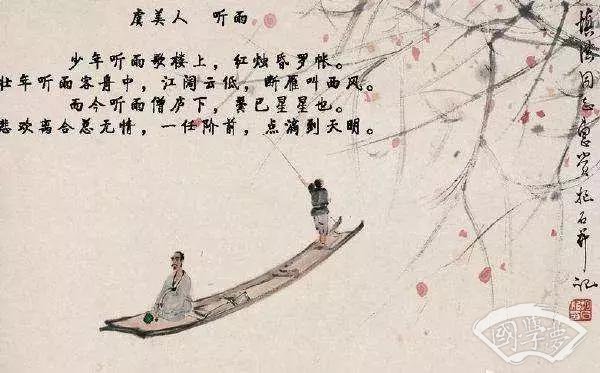 虞美人 听雨
少年听雨歌楼上，红烛昏罗帐。
壮年听雨客舟中，江阔云低，断雁叫西风。
而今听雨僧庐下，鬓已星星也。
悲欢离合总无情，一任阶前，点滴到天明。
同志惠赏抱石并记
國學夢